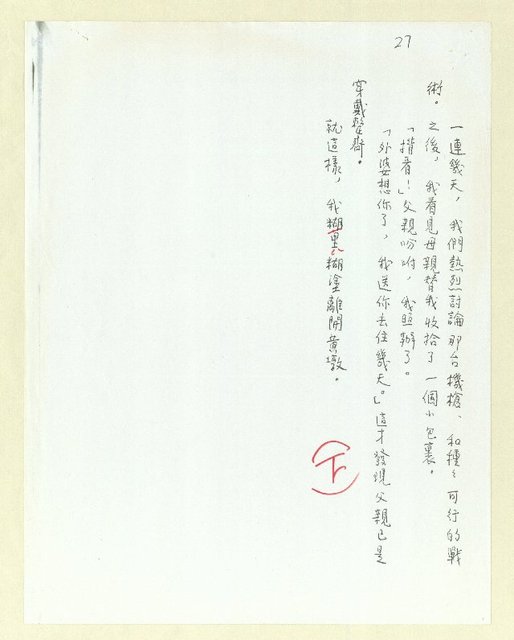 27
一連幾天，我們熱烈討論那台機槍、和種種可行的戰
術。之後，我看見母親替我收拾了一個小包裹。
「揹着！」父親吩咐，我照辦了。
「外婆想你了，我送你去住幾天。」這才發現父親已是
穿戴整齊。
就這樣，我糊里糊塗離開黃墩。
下